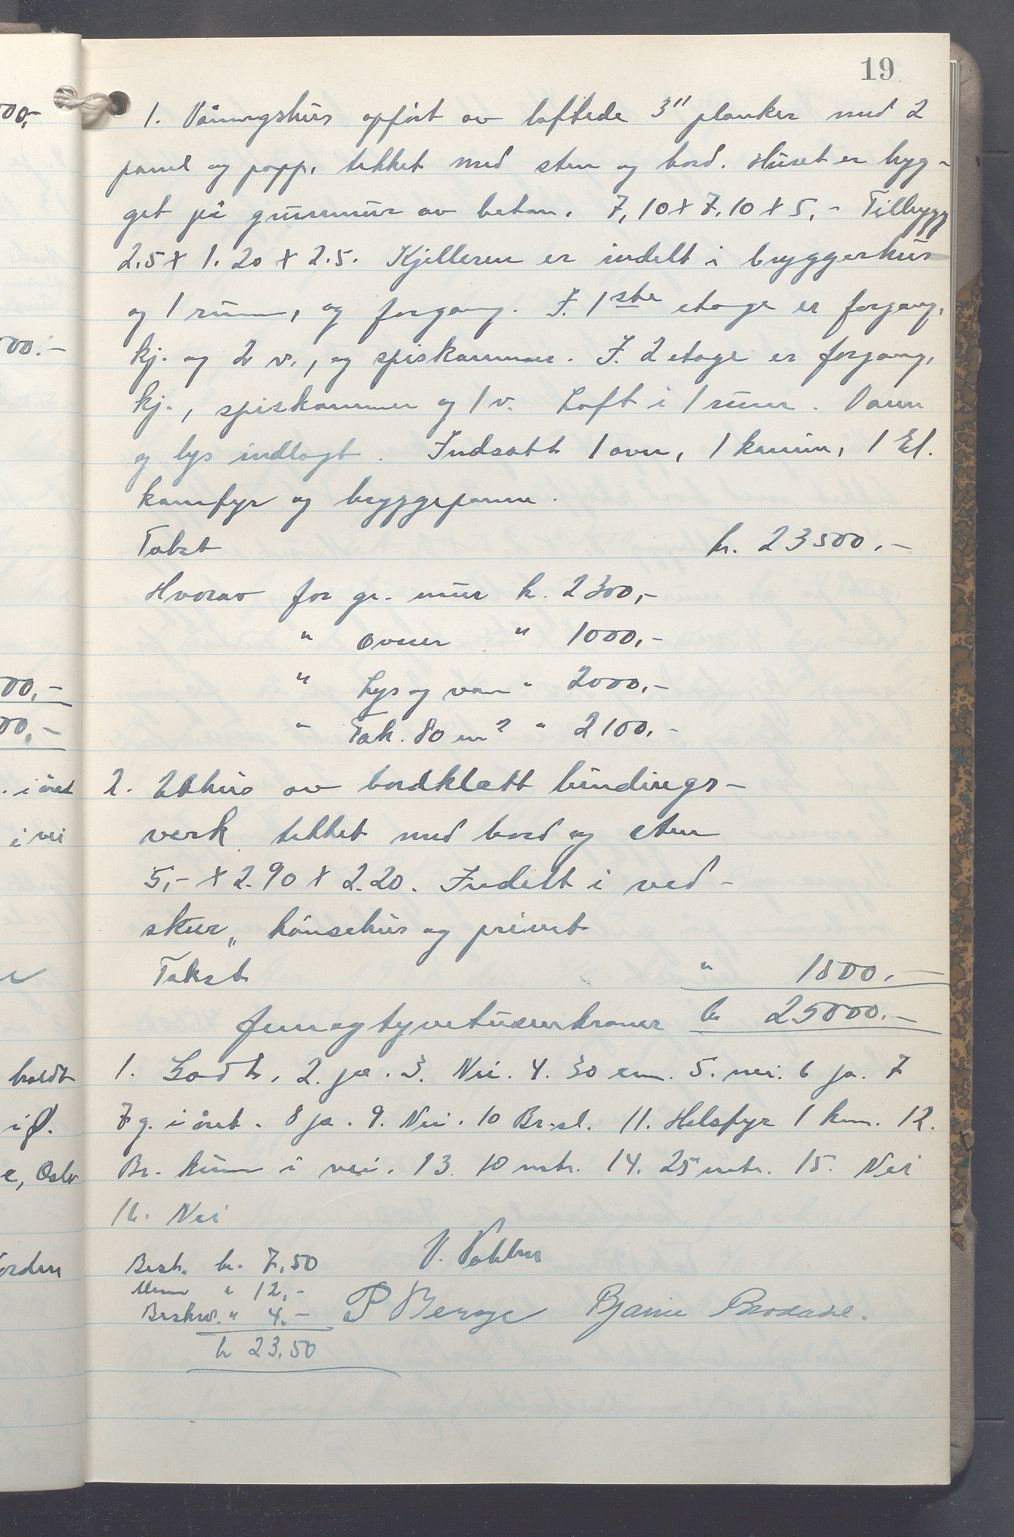 19
00,-
1. Våningshus opført av laftede 3" planker med 2
panel og papp, tekket med sten og bord. Huset er byg-
get på grunnmur av betong. 7,10 X 7.10 X 5,- Tilbygg
2.5 X 1.20 X 2.5. Kjelleren er indelt i bryggerhus
og 1 rum, og forgang. I. 1ste etage er forgang,
00.-
kj. og 2 v., og spiskammer. I. 2 etage er forgang,
kj., spiskammer og 1 v. Loft i 1 rum. Vann
og lys indlagt. Indsatt 1 ovn, 1 kamin, 1 El.
komfyr og bryggepanne.
Takst kr. 23500.-
Hvorav for gr. mur kr. 2300,-
" ovner " 1000,-
00,-
" Lys og vann " 2000,-
00,-
" Tak. 80 m2 " 2100.-
. i året
2. Uthus av bordklætt bindings-
i vei
verk tekket med bord og sten
5,- X 2.90 X 2.20. Indelt i ved-
skur, hønsehus og privet
Takst " 1500.-
femogtyvetusenkroner kr 25000.-
holdt
1. Godt, 2. ja. 3. Nei. 4. 30 cm. 5. nei. 6 ja. 7
i Ø.
7 g. i året. 8 ja. 9. Nei. 10 Br.sl. 11. Helsfyr 1 km. 12.
e, Oslo
Br. kum i vei. 13. 10 mtr. 14. 25 mtr. 15. Nei
16. Nei
orden
Best. kr. 7,50
" 12,-
Beskr. " 4.- P Berge Bjarne
kr 23.50